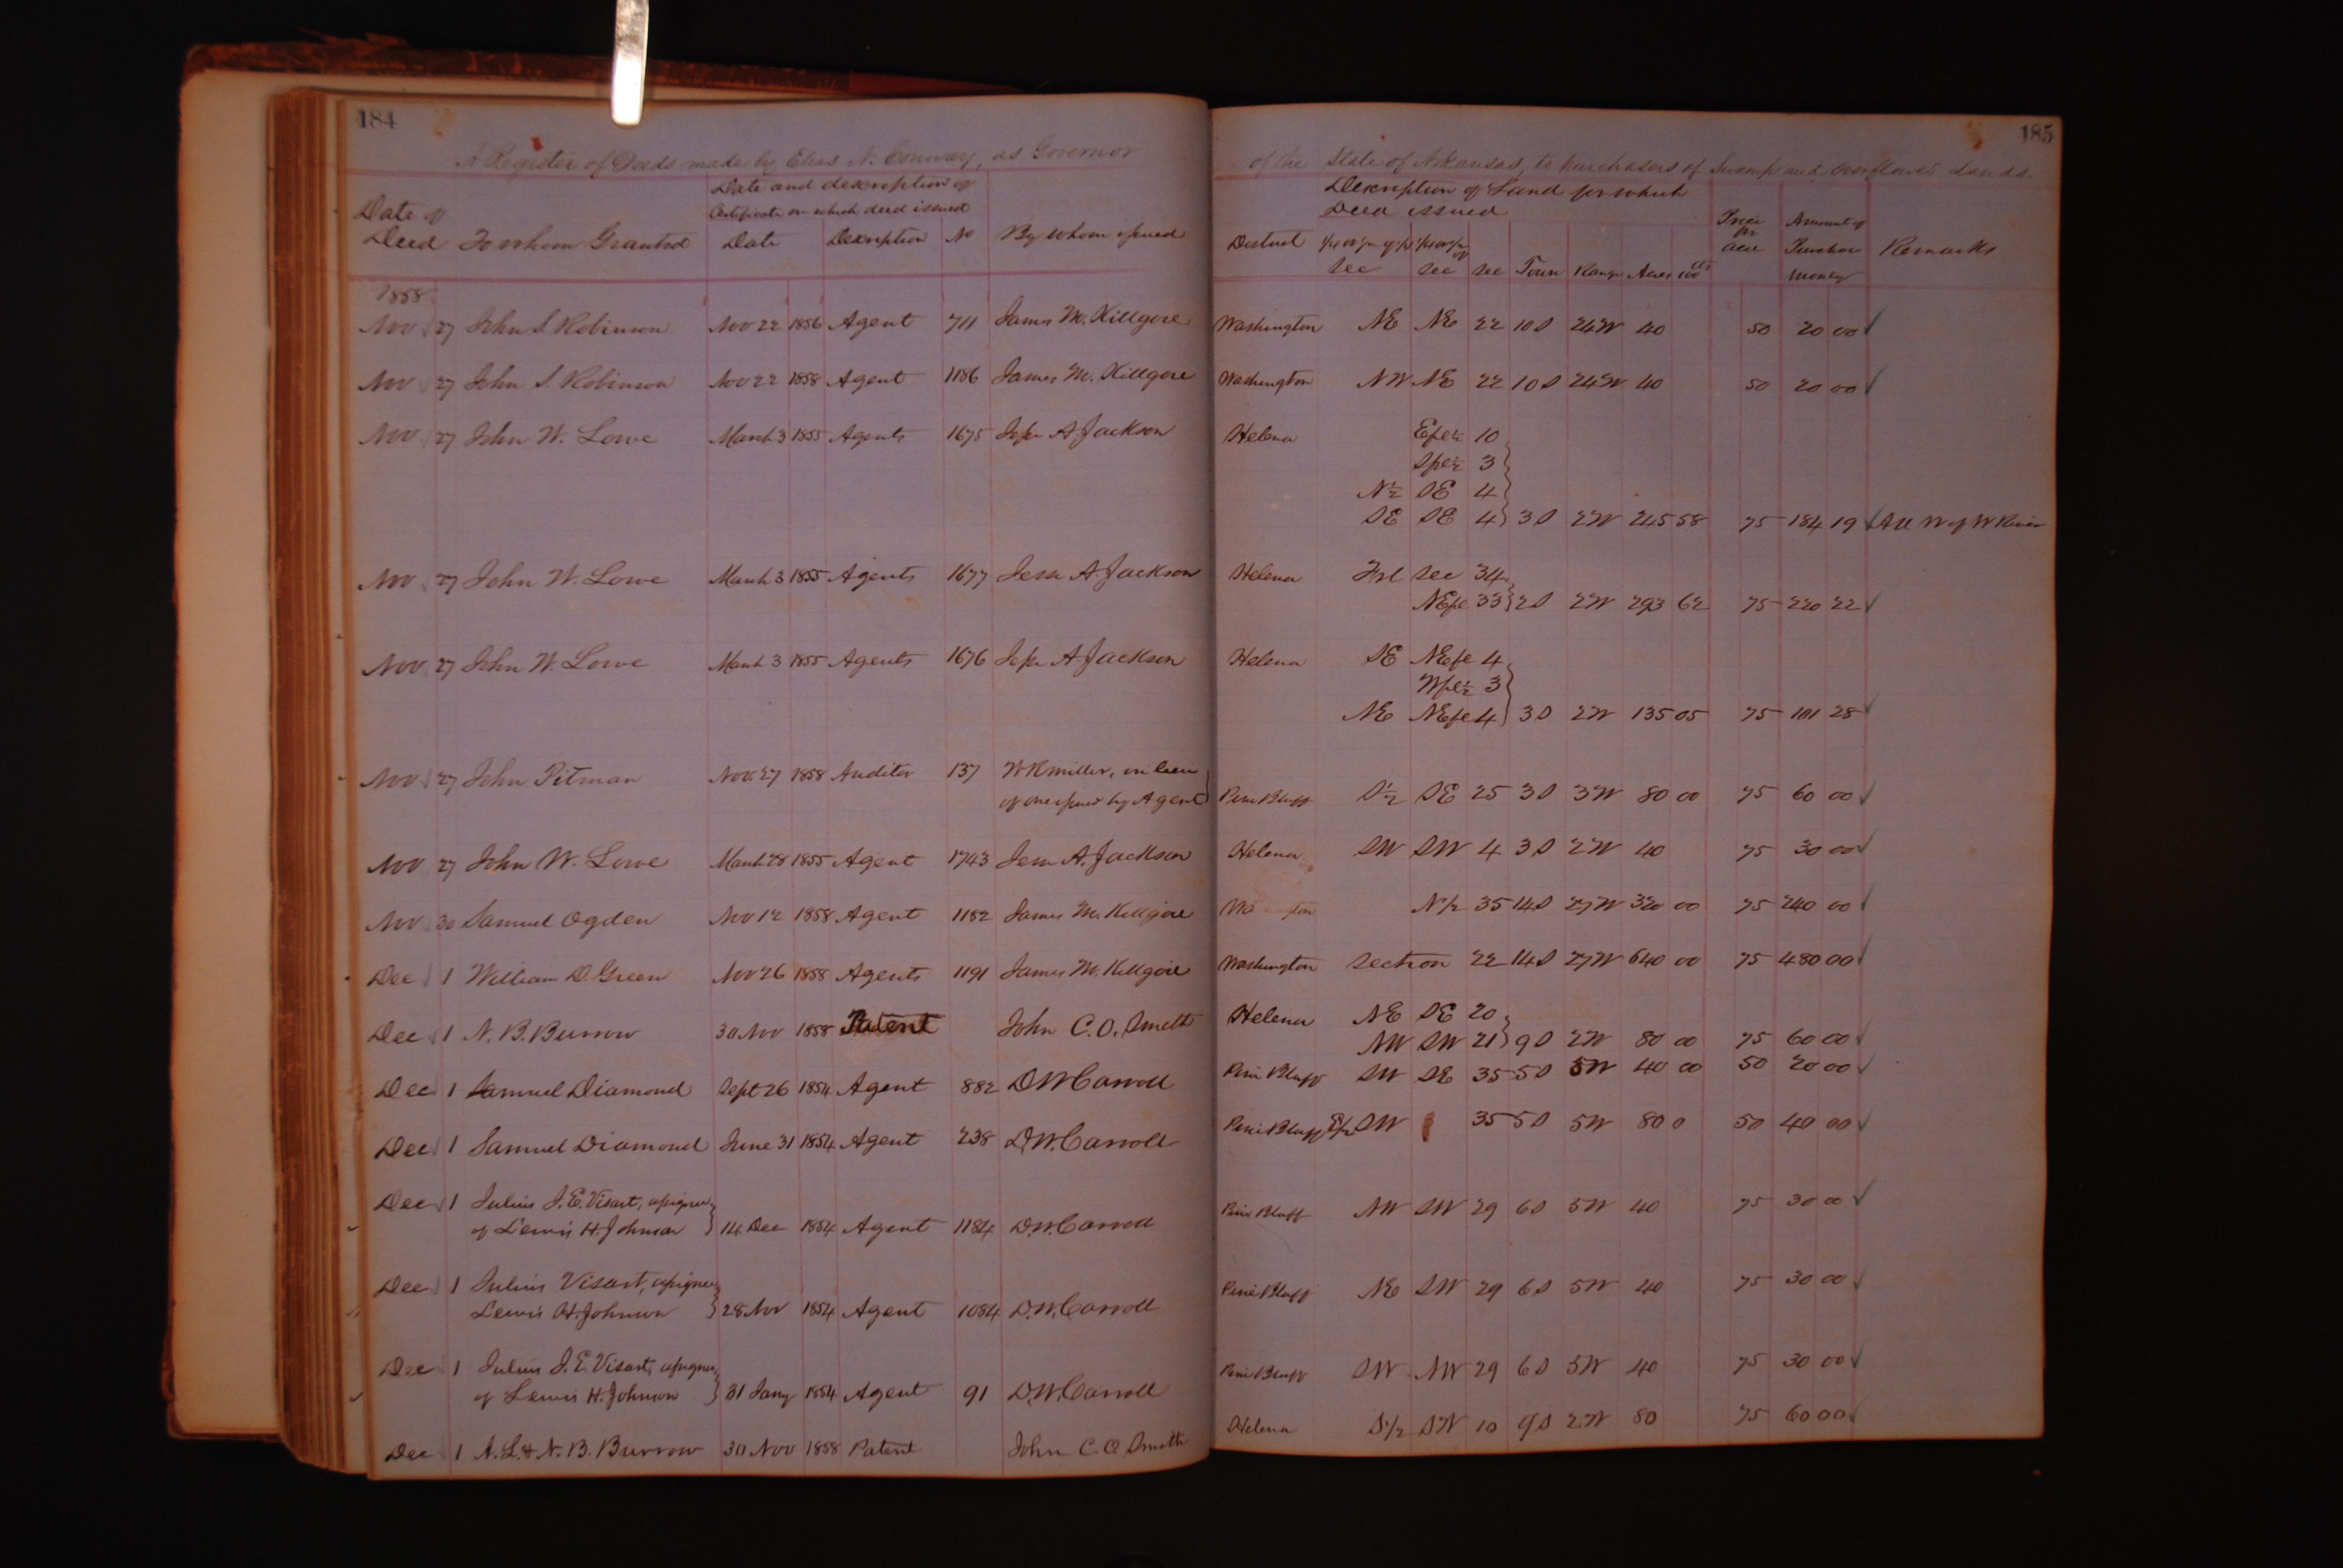 184
A Register of Deeds made by Elias N. Conway, as Governor
Date and description of
Certificate on which deed issued
Date of
Deed To whom Granted Date Description No By whom issued
1858
Nov 27 John S. Robinson Nov 22 1856 Agent 711 James M. Killgore
Nov 27 John S. Robinson Nov 22 1858 Agent 1186 James M. Killgore
Nov 27 John W. Lowe March 3 1855 Agents 1675 Jesse A. Jackson
Nov 27 John W. Lowe March 3 1855 Agents 1677 Jesse A. Jackson
Nov 27 John W. Lowe March 3 1855 Agents 1676 Jesse A. Jackson
Nov 27 John Pitman Nov 27 1858 Auditor 137 W R Miller, in lieu
of one issued by Agent
Nov 27 John W. Lowe March 28 1855 Agent 1743 Jesse A. Jackson
Nov 30 Samuel Ogden Nov 12 1858 Agent 1182 James M. Killgore
Dec 1 William D. Green Nov 26 1858 Agents 1191 James M. Killgore
Dec 1 N. B. Burrow 30 Nov 1858 Patent John C. O. Smith
Dec 1 Samuel Diamond Sept 26 1854 Agent 882 D W Carroll
Dec 1 Samuel Diamond June 31 1854 Agent 238 D. W. Carroll
Dec 1 Julius J. E. Visart, assignee
of Lewis H. Johnson 14 Dec 1854 Agent 1184 D. W. Carroll
Dec 1 Julius Visart, assignee
Lewis H. Johnson 28 Nov 1854 Agent 1084 D. W. Carroll
Dec 1 Julius J. E. Visart, assignee
of Lewis H. Johnson 31 Jany 1854 Agent 91 D. W. Carroll
Dec 1 A. L. & N. B. Burrow 30 Nov 1858 Patent John C. O. Smith
185
of the State of Arkansas, to purchasers of Swamp and overflowed Lands.
Description of Land for which
Deed issued
District ¼ or ½ of ¼ Sec ¼ or ½ of Sec Sec Town Range Acres 100cts Price pr acre Amount of Purchase money Remarks
Washington NE NE 22 10 S 24 W 40 50 20 00 ✓
Washington NW NE 22 10 S 24 W 40 50 20 00 ✓
Helena E fc ½ 10
S fc ½ 3
N ½ SE 4
SE SE 4 3 S 2 W 245 58 75 184 19 ✓ All W of W River
Helena Frl Sec 34
NE fc 33 2 S 2 W 293 62 75 220 22 ✓
Helena SE NE fc 4
W fc ½ 3
NE NE fc 4 3 S 2 W 135 05 75 101 28 ✓
Pine Bluff S ½ SE 25 3 S 3 W 80 00 75 60 00 ✓
Helena SW SW 4 3 S 2 W 40 75 30 00 ✓
N ½ 35 14 S 27 W 320 00 75 240 00 ✓
Washington Section 22 14 S 27 W 640 00 75 480 00 ✓
Helena NE SE 20
NW SW 21 9 S 2 W 80 00 75 60 00 ✓
Pine Bluff SW SE 35 5 S 5 W 40 00 50 20 00 ✓
Pine Bluff E/2 SW 35 5 S 5 W 80 0 50 40 00 ✓
Pine Bluff NW SW 29 6 S 5 W 40 75 30 00 ✓
Pine Bluff NE SW 29 6 S 5 W 40 75 30 00 ✓
Pine Bluff SW NW 29 6 S 5 W 40 75 30 00 ✓
Helena S ½ SW 10 9 S 2 W 80 75 60 00 ✓